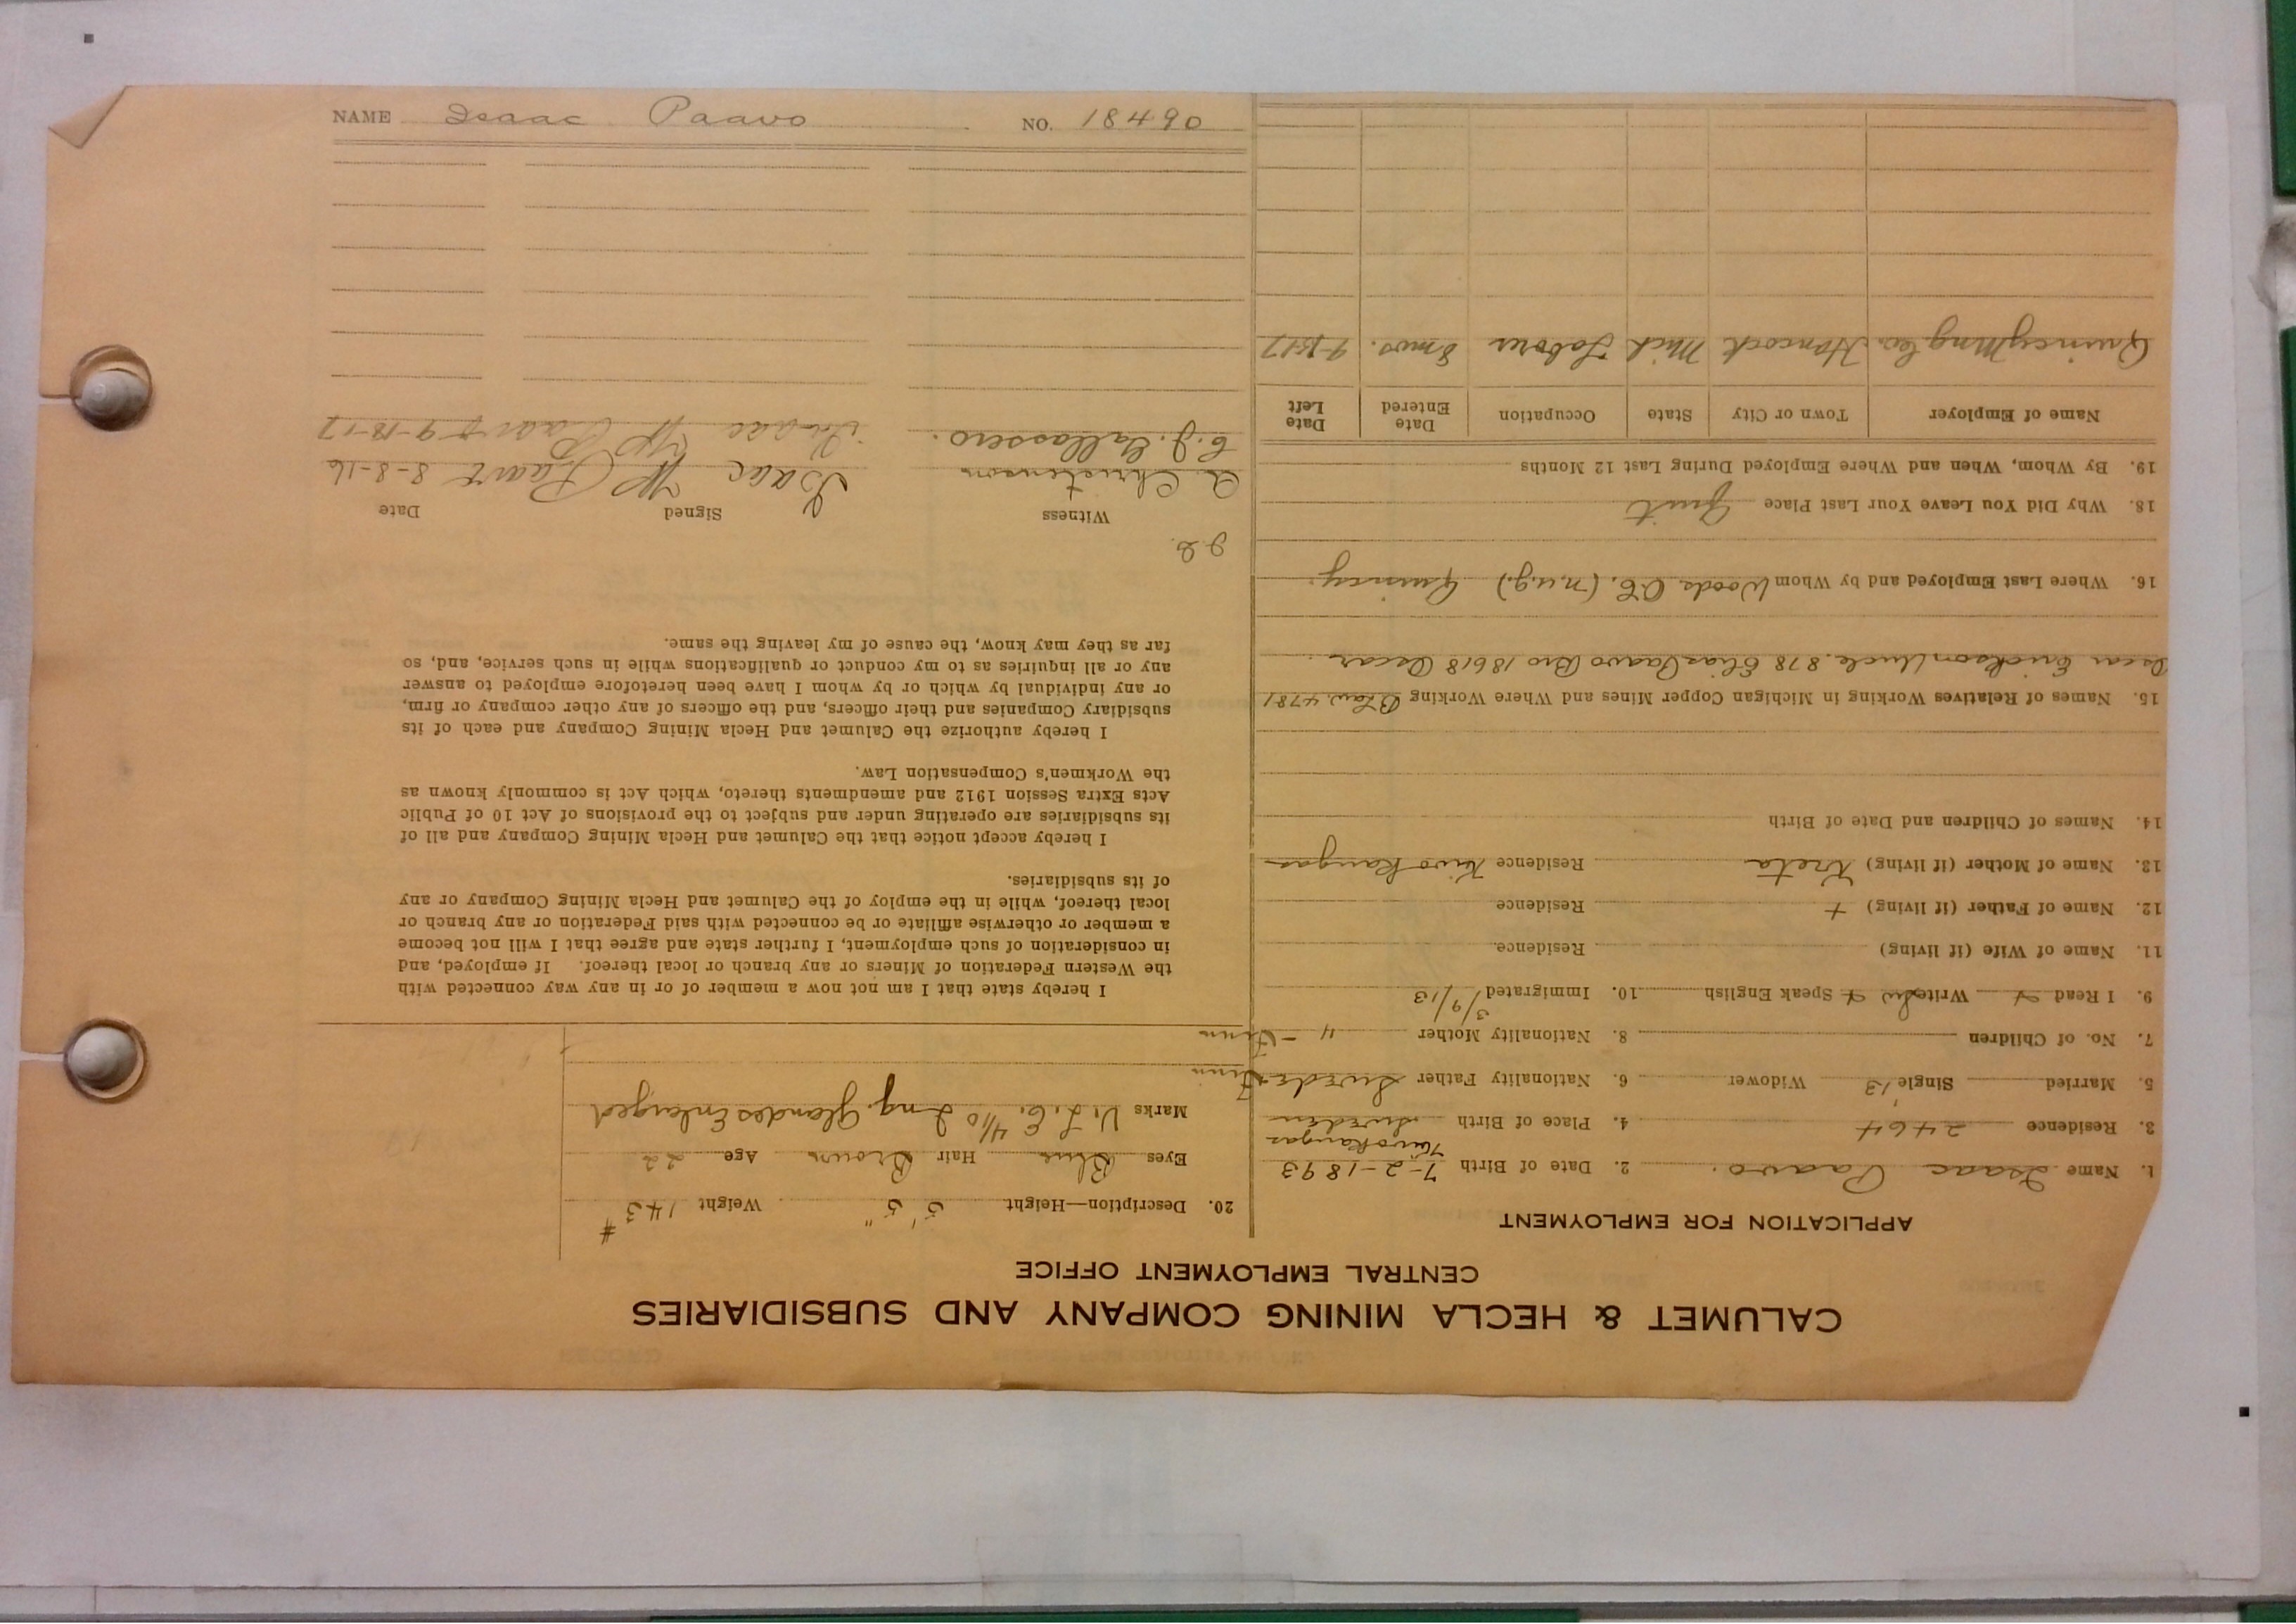 NAME Isaac Paavo NO. 18490
CALUMET & HECLA MINING COMPANY AND SUBSIDIARIES
CENTRAL EMPLOYMENT OFFICE
APPLICATION FOR EMPLOYMENT
1. Name Isaac Paavo. 2. Date of Birth 7-2-1893
3. Residence 2464 4. Place of Birth Sweden
5. Married Single 13 Widower 6. Nationality Father Swede - Finn
7. No. of Children 8. Nationality Mother " - Finn
9. I Read Write Speak English 10. Immigrated 3/9/13
11. Name of Wife (if living) Residence
12. Name of Father (if living) + Residence
13. Name of Mother (if living) Kreta Residence
14. Names of Children and Date of Birth
15. Names of Relatives Working in Michigan Copper Mines and Where Working B Law 4781
Oscar Erickson Uncle. 878 Elias Paavo Bro 18618 Oscar
16. Where Last Employed and by Whom Woods (n.u.g.) Quincy.
18. Why Did You Leave Your Last Place Quit
19. By Whom, When and Where Employed During Last 12 Months
Name of Employer Town or City State Occupation Date Entered Date Left
Quincy Mng Co. Hancock Mich Laborer 8 mos. 9-15-17
20. Description—Height 5' 5" Weight 143 #
Eyes Blue Hair Brown Age 22
Marks V. L. E. 4/10 Ing. Glandes Enlarged
I hereby state that I am not now a member of or in any way connected with
the Western Federation of Miners or any branch or local thereof. If employed, and
in consideration of such employment, I further state and agree that I will not become
a member or otherwise affiliate or be connected with said Federation or any branch or
local thereof, while in the employ of the Calumet and Hecla Mining Company or any
of its subsidiaries.
I hereby accept notice that the Calumet and Hecla Mining Company and all of
its subsidiaries are operating under and subject to the provisions of Act 10 of Public
Acts Extra Session 1912 and amendments thereto, which Act is commonly known as
the Workmen's Compensation Law.
I hereby authorize the Calumet and Hecla Mining Company and each of its
subsidiary Companies and their officers, and the officers of any other company or firm,
or any individual by which or by whom I have been heretofore employed to answer
any or all inquiries as to my conduct or qualifications while in such service, and, so
far as they may know, the cause of my leaving the same.
Witness Signed Date
A. Christenson Isaac Paavo 8-8-16
Isaac Paavo 9-18-17